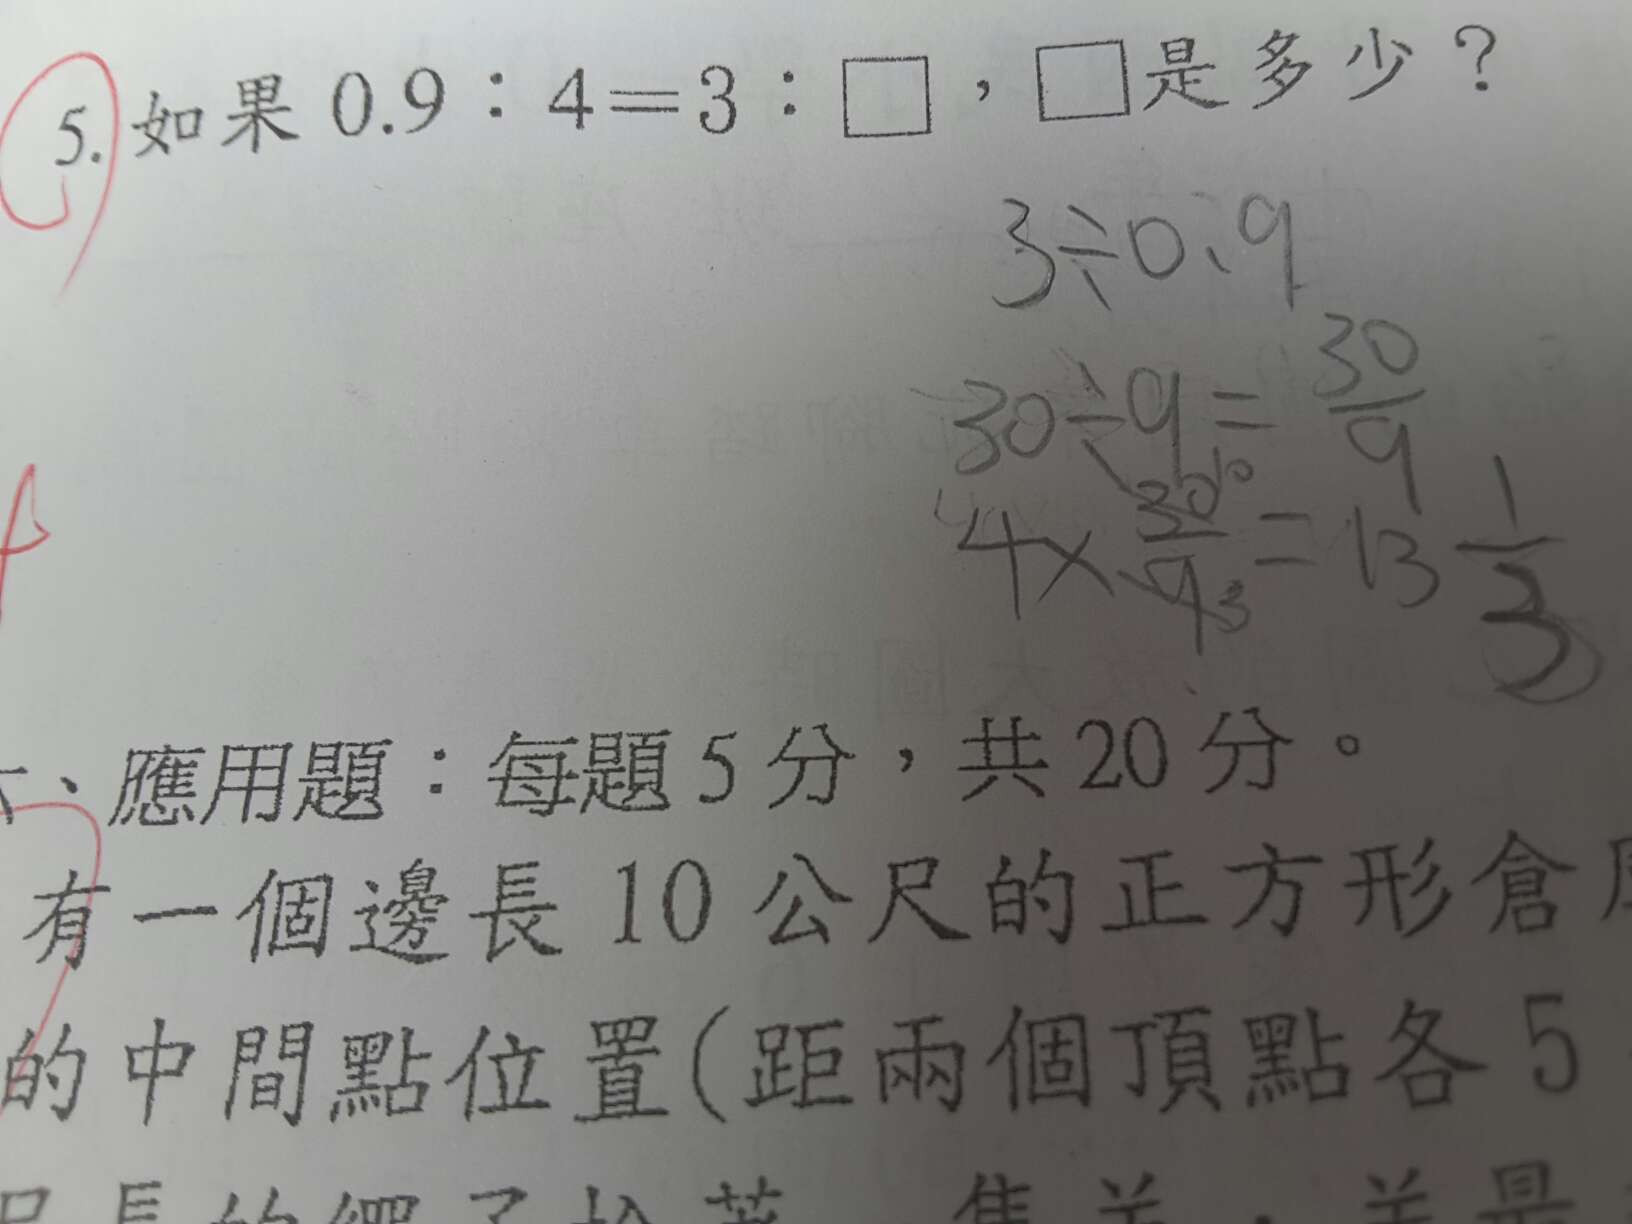 5. 如果 0.9：4＝3：□，□是多少？
3÷0.9
30÷9=30/9
4×30/9 10 3=13 1/3
、應用題：每題5分，共20分。
有一個邊長 10 公尺的正方形倉
的中間點位置(距兩個頂點各 5
長的繩子拴著一隻羊，羊最